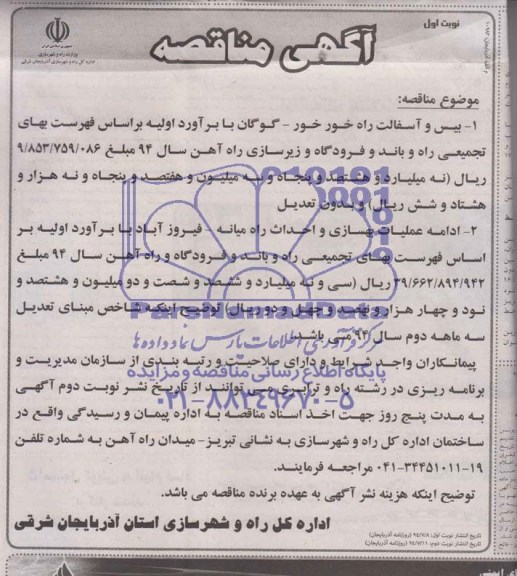 نوبت اول
جمهوری اسلامی ایران
وزارت راه و شهرسازی
اداره کل راه و شهرسازی آذربایجان شرقی
آگهی مناقصه
موضوع مناقصه:
۱- بیس و آسفالت راه خور خور - گوگان با برآورد اولیه براساس فهرست بهای
تجمیعی راه و باند و فرودگاه و زیرسازی راه آهن سال ۹۴ مبلغ ۹/۸۵۳/۷۵۹/۰۸۶
ریال (نه میلیارد و هشتصد و پنجاه و سه میلیون و هفتصد و پنجاه و نه هزار و
هشتاد و شش ریال) و بدون تعدیل
۲- ادامه عملیات بهسازی و احداث راه میانه - فیروز آباد با برآورد اولیه بر
اساس فهرست بهای تجمیعی راه و باند و فرودگاه و راه آهن سال ۹۴ مبلغ
۳۹/۶۶۲/۸۹۴/۹۴۲ ریال (سی و نه میلیارد و ششصد و شصت و دو میلیون و هشتصد و
نود و چهار هزار و نهصد و چهل و دو ریال) توضیح اینکه شاخص مبنای تعدیل
سه ماهه دوم سال ۹۴ می باشد.
پیمانکاران واجد شرایط و دارای صلاحیت و رتبه بندی از سازمان مدیریت و
برنامه ریزی در رشته راه و ترابری می توانند از تاریخ نشر نوبت دوم آگهی
به مدت پنج روز جهت اخذ اسناد مناقصه به اداره پیمان و رسیدگی واقع در
ساختمان اداره کل راه و شهرسازی به نشانی تبریز - میدان راه آهن به شماره تلفن
۰۴۱-۳۴۴۵۱۰۱۱-۱۹ مراجعه فرمایند.
توضیح اینکه هزینه نشر آگهی به عهده برنده مناقصه می باشد.
اداره کل راه و شهرسازی استان آذربایجان شرقی
تاریخ انتشار نوبت اول: ۹۴/۷/۸ (روزنامه آذربایجان)
تاریخ انتشار نوبت دوم: ۹۴/۷/۱۱ (روزنامه آذربایجان)
ParsNamadData
مرکز فرآوری اطلاعات پارس نماد داده ها
پایگاه اطلاع رسانی مناقصه و مزایده
۰۲۱-۸۸۳۴۹۶۷۰-۵